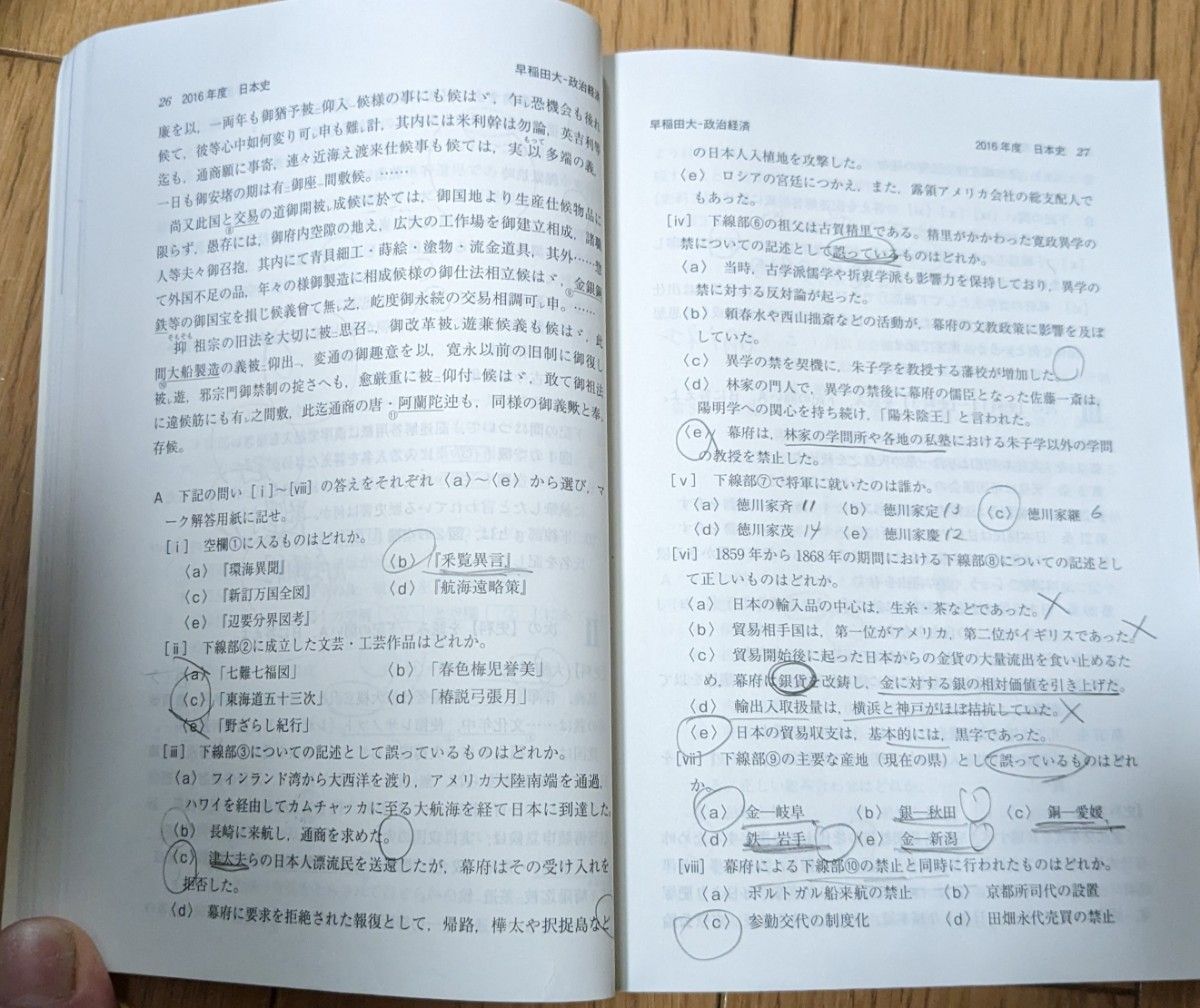 26 2016年度 日本史
早稲田大-政治経済
廉を以，一両年も御猶予被仰入候様の事にも候はゞ，乍恐機会も後れ
候て，彼等心中如何変り可申も難計，其内には米利幹は勿論，英吉利等
迄も，通商願に事寄，連々近海え渡来仕候事も候ては，実以多端の義，
もって
一日も御安堵の期は有御座間敷候。……
尚又此国と交易の道御開被成候に於ては，御国地より生産仕候物品に
⑧
限らず，愚存には，御府内空隙の地え，広大の工作場を御建立相成，諸職
人等夫々御召抱，其内にて青貝細工・蒔絵・塗物・流金道具，其外……惣
て外国不足の品，年々の様御製造に相成候様の御仕法相立候はゞ，金銀銅
⑨
鉄等の御国宝を損じ候義曾て無之，屹度御永続の交易相調可申。……
そもそも
抑祖宗の旧法を大切に被思召，御改革被遊兼候義も候はゞ，此
間大船製造の義被仰出，変通の御趣意を以，寛永以前の旧制に御復し
⑩
被遊，邪宗門御禁制の掟さへも，愈厳重に被仰付候はゞ，敢て御祖法
に違候筋にも有之間敷，此迄通商の唐・阿蘭陀迚も，同様の御義歟と奉
⑪
存候。
A 下記の問い［ⅰ］～［ⅷ］の答えをそれぞれ〈a〉～〈e〉から選び，マ
ーク解答用紙に記せ。
［ⅰ］ 空欄①に入るものはどれか。
〈a〉『環海異聞』 〈b〉『采覧異言』
〈c〉『新訂万国全図』 〈d〉『航海遠略策』
〈e〉『辺要分界図考』
［ⅱ］ 下線部②に成立した文芸・工芸作品はどれか。
〈a〉「七難七福図」 〈b〉「春色梅児誉美」
〈c〉「東海道五十三次」 〈d〉「椿説弓張月」
〈e〉「野ざらし紀行」
［ⅲ］ 下線部③についての記述として誤っているものはどれか。
〈a〉 フィンランド湾から大西洋を渡り，アメリカ大陸南端を通過，
ハワイを経由してカムチャッカに至る大航海を経て日本に到達した。
〈b〉 長崎に来航し，通商を求めた。
〈c〉 津太夫らの日本人漂流民を送還したが，幕府はその受け入れを
拒否した。
〈d〉 幕府に要求を拒絶された報復として，帰路，樺太や択捉島など
早稲田大-政治経済
2016年度 日本史 27
の日本人入植地を攻撃した。
〈e〉 ロシアの宮廷につかえ，また，露領アメリカ会社の総支配人で
もあった。
［ⅳ］ 下線部⑥の祖父は古賀精里である。精里がかかわった寛政異学の
禁についての記述として誤っているものはどれか。
〈a〉 当時，古学派儒学や折衷学派も影響力を保持しており，異学の
禁に対する反対論が起った。
〈b〉 頼春水や西山拙斎などの活動が，幕府の文教政策に影響を及ぼ
していた。
〈c〉 異学の禁を契機に，朱子学を教授する藩校が増加した。
〈d〉 林家の門人で，異学の禁後に幕府の儒臣となった佐藤一斎は，
陽明学への関心を持ち続け，「陽朱陰王」と言われた。
〈e〉 幕府は，林家の学問所や各地の私塾における朱子学以外の学問
の教授を禁止した。
［ⅴ］ 下線部⑦で将軍に就いたのは誰か。
〈a〉 徳川家斉 11 〈b〉 徳川家定 13 〈c〉 徳川家継 6
〈d〉 徳川家茂 14 〈e〉 徳川家慶 12
［ⅵ］ 1859年から1868年の期間における下線部⑧についての記述とし
て正しいものはどれか。
〈a〉 日本の輸入品の中心は，生糸・茶などであった。×
〈b〉 貿易相手国は，第一位がアメリカ，第二位がイギリスであった。×
〈c〉 貿易開始後に起った日本からの金貨の大量流出を食い止めるた
め，幕府は銀貨を改鋳し，金に対する銀の相対価値を引き上げた。
〈d〉 輸出入取扱量は，横浜と神戸がほぼ拮抗していた。×
〈e〉 日本の貿易収支は，基本的には，黒字であった。
［ⅶ］ 下線部⑨の主要な産地（現在の県）として誤っているものはどれ
か。
〈a〉 金―岐阜 〈b〉 銀―秋田 〈c〉 銅―愛媛
〈d〉 鉄―岩手 〈e〉 金―新潟
［ⅷ］ 幕府による下線部⑩の禁止と同時に行われたものはどれか。
〈a〉 ポルトガル船来航の禁止 〈b〉 京都所司代の設置
〈c〉 参勤交代の制度化 〈d〉 田畑永代売買の禁止